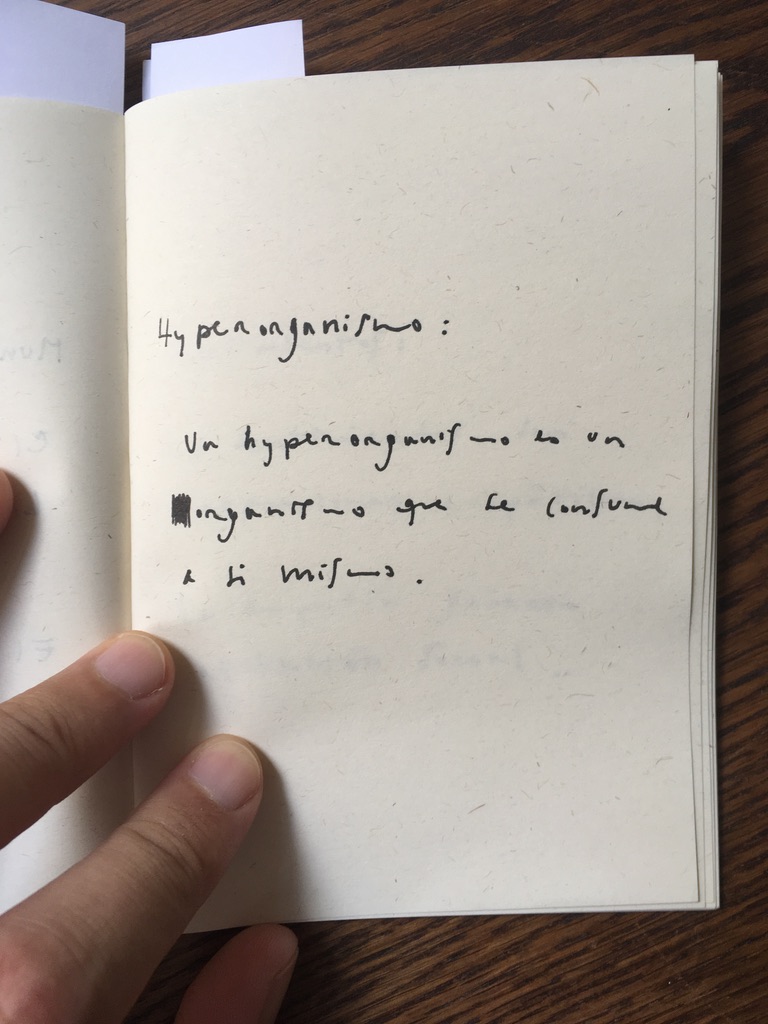 Hyperorganismo:
Un hyperorganismo es un
organismo que se consume
a si mismo.